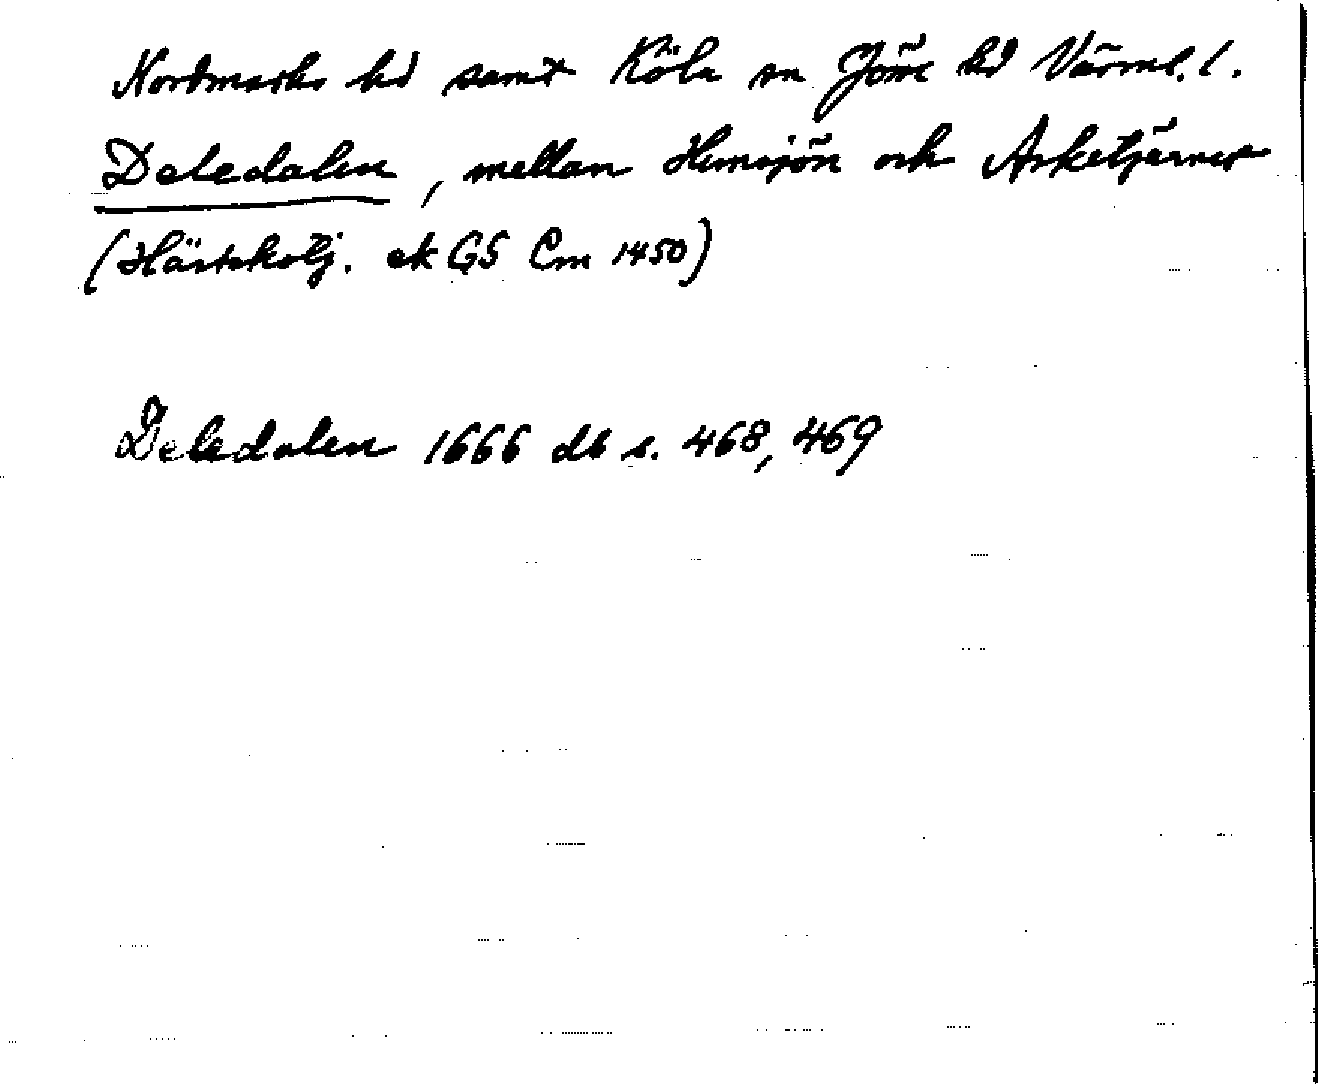 Nordmarks hd samt Köla sn Jösse hd Värml. l.
Deledalen, mellan Hemsjön och Asketjärnet
(Hästskotj. ek GS Cm 1450)
Deledalen 1666 db s. 468, 469